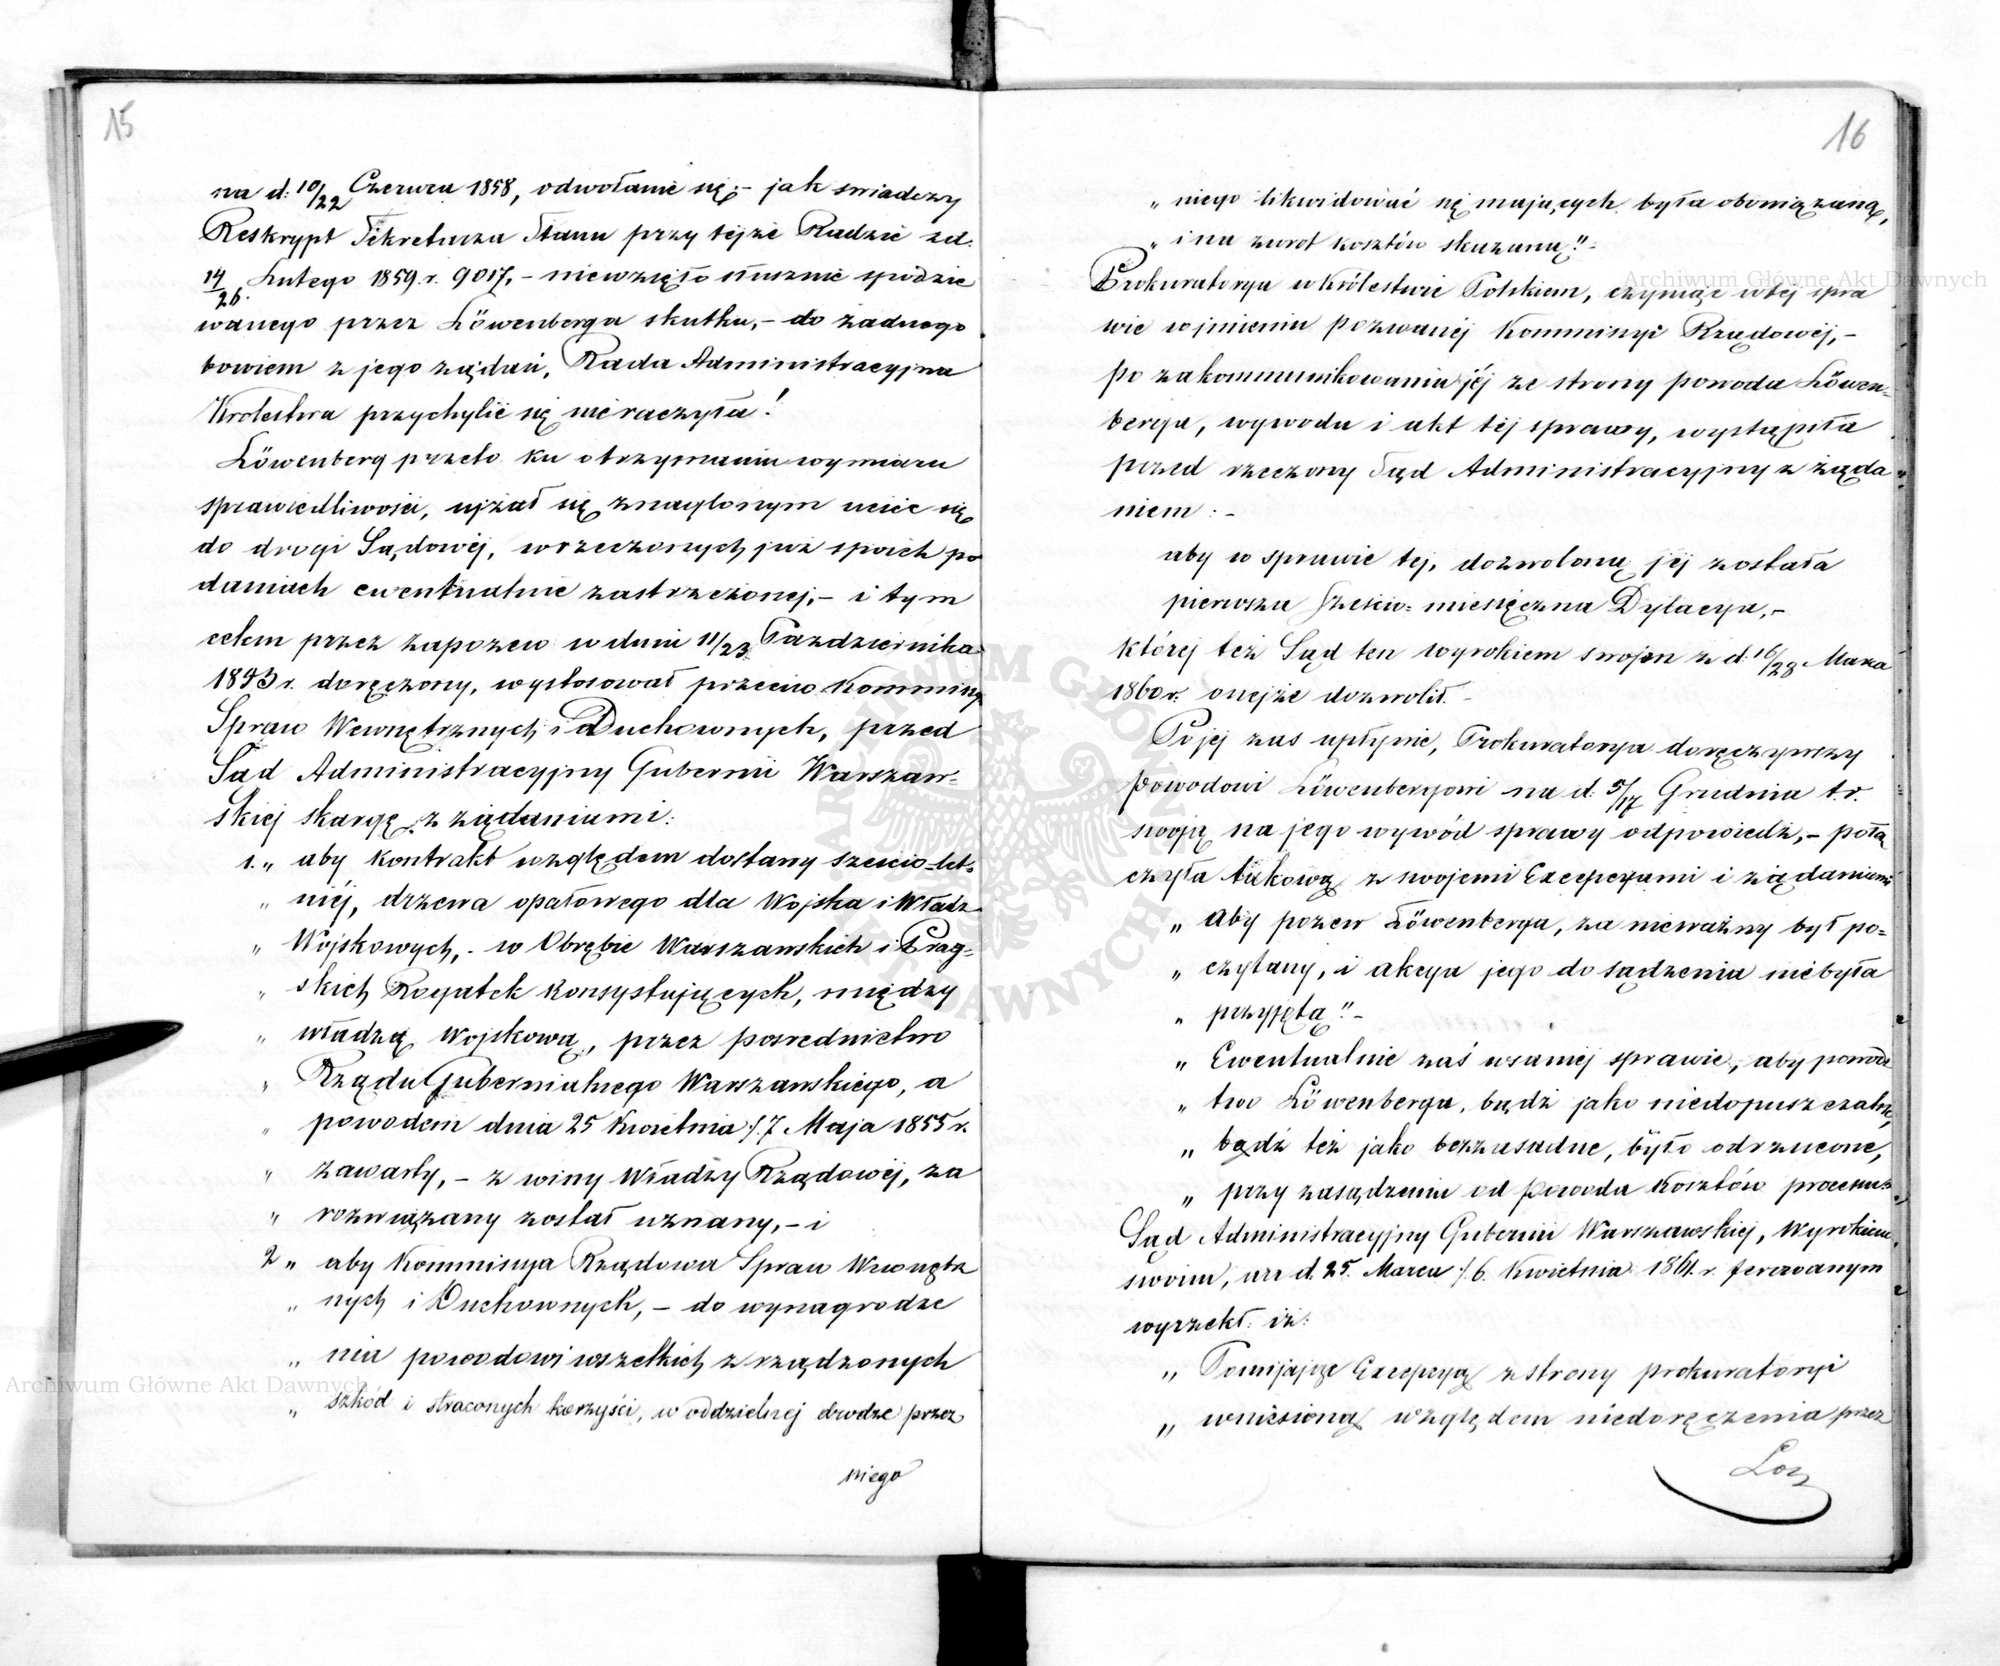 15
na d: 10/22 Czerwca 1858, odwołanie się; – jak swiadczy
Reskrypt Sekretarza Stanu przy tejże Radzie z d:
14/26. Lutego 1859. r. 9017, – niewzięło słusznie spodzie
wanego przez Löwenberga skutku, – do żadnego
bowiem z jego żądań, Rada Administracyjna
Krolestwa przychylić się nie raczyła!
Löwenberg przeto ku otrzymaniu wymiaru
sprawiedliwości, ujżał się znaglonym uciec się
do drogi Sądowéj, w rzeczonych już swoich po
daniach ewentualnie zastrzeżonej, – i tym
celem przez zapozew w dniu 11/23 Pazdziernika
1893 r. doręczony, wystosował przeciw Kommissyi
Spraw Wewnętrznych i Duchownych, przed
Sąd Administracyjny Gubernii Warszaw=
skiej skargę z żądaniami:
1. „ aby Kontrakt względem dostawy sześcio=let=
„ niéj, drzewa opałowego dla Wojska i Władz
„ Wojskowych, – w Obrębie Warszawskich i Prag=
„ skich Rogatek Konsystujących, między
„ władzą Wojskową, przez posrednictwo
„ Rządu Gubernialnego Warszawskiego, a
„ powodem dnia 25 Kwietnia /: 7 Maja 1855 r.
„ zawarty, – z winy Władzy Rządowéj, za
„ rozwiązany został uznany, – i
2 „ aby Kommissya Rządowa Spraw Wewnętrz
„ nych i Duchownych, – do wynagrodze
„ nia powodowi wszelkich zrządzonych
„ szkód i straconych korzyści, w oddzielnej drodze przez
niego
16
„ niego likwidować się mających była obowiązaną,
„ i na zwrot kosztów skazaną".
Prokuratorya w Królestwie Polskiem, czyniąc w téj spra
wie w jmieniu pozwanéj Kommissyi Rządowéj, –
po zakommunikowaniu jéj ze strony powoda Löwen=
berga, wywodu i akt téj sprawy, wystąpiła
przed rzeczony Sąd Administracyjny z żąda=
niem: –
aby w sprawie tej, dozwoloną jej została
pierwsza Sześcio=miesięczna Dylacya, –
której też Sąd ten wyrokiem swojem z d. 16/28 Marca
1860 r. onejże dozwolił. –
Po jej zaś upłynie, Prokuratorya doręczywszy
Powodowi Löwenbergowi na d. 5/17 Grudnia t. r.
swoję na jego wywód sprawy odpowiedź, – połą
czyła takową z swojemi Excepcyami i żądaniami
„ aby pozew Löwenberga, za nieważny był po=
„ czytany, i akcya jego do sądzenia nie była
„ przyjętą". –
„ Ewentualnie zaś w samej sprawie, aby powódz
„ two Löwenberga, bądź jako niedopuszczalne,
„ bądź też jako bezzasadne, było odrzucone,
„ przy zasądzeniu od powoda Kosztów processu.
Sąd Administracyjny Gubernii Warszawskiej, Wyrokiem
swoim, na d. 25. Marca /: 6. Kwietnia 1861. r. ferowanym
wyrzekł: iż:
„ Pomijając Excepcyą z strony prokuratoryi
„ wniesioną względem niedoręczenia przez
Löw
Archiwum Główne Akt Dawnych
Archiwum Główne Akt Dawnych
ARCHIWUM GŁÓWNE AKT DAWNYCH